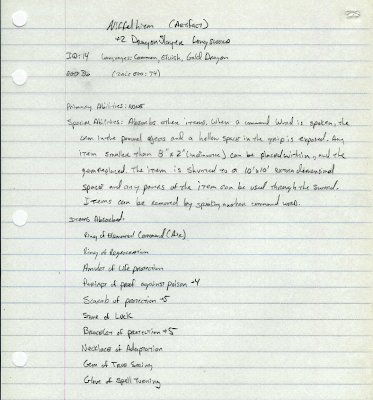 Niffelhiem (Artifact)
+2 Dragon Slayer Long Sword
IQ: 14 Languages: Common, Elvish, Gold Dragon
EGO: 36
Primary Abilities: NONE
Special Abilities: Absorbs other items. When a command word is spoken, the
gem in the pommel ejects and a hollow space in the grip is exposed. Any
item smaller than 3" x 2" (wide) can be placed within, and the
gem replaced. The item is shunted to a 10'x10' extradimensional
space and any powers of the item can be used through the sword.
Items can be removed by speaking another command word.
Items Absorbed:
Ring of Elemental Command (Air)
Ring of Regeneration
Amulet of Life protection
Periapt of proof against poison -4
Scarab of protection +5
Stone of Luck
Bracelet of protection +5
Necklace of Adaptation
Gem of True Seeing
Glove of Spell Turning